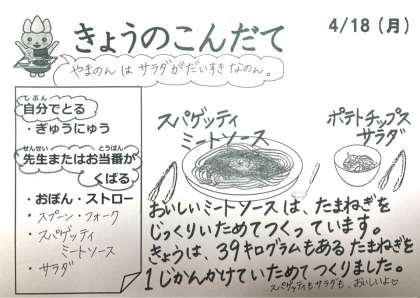 きょうのこんだて
4/18（月）
やまのんは サラダがだいすきなのん。
じぶん
自分でとる
・ぎゅうにゅう
せんせい とうばん
先生またはお当番が
くばる
・おぼん・ストロー
・スプーン・フォーク
・スパゲッティ
ミートソース
・サラダ
スパゲッティ
ミートソース
ポテトチップス
サラダ
おいしいミートソースは、たまねぎを
じっくりいためてつくっています。
きょうは、39キログラムもあるたまねぎを
1じかんかけていためてつくりました。
スパゲッティもサラダも、おいしいよ♡